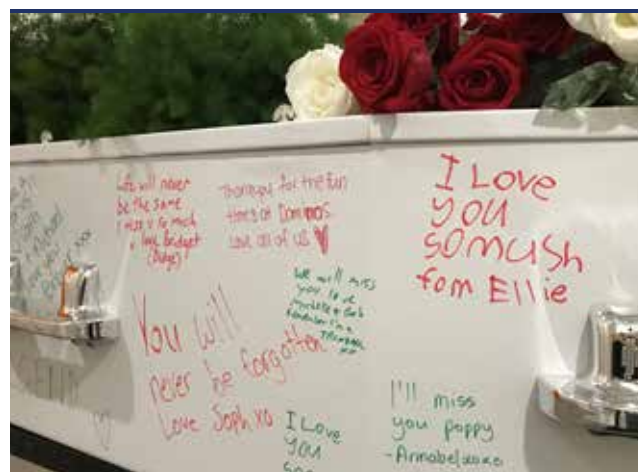 Life will never
be the same
I miss u so much
love Bridget
(Budge)
Thankyou for the fun
times at Dominos
Love all of us
I Love
you
somush
fom Ellie
We will miss
you love
You will
never be forgotten
Love Soph xo
I Love
you
so
I'll miss
you poppy
-Annabel xoxo